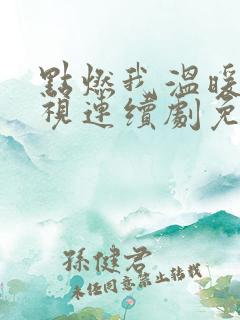 點燃我,溫暖
視連續劇免
孫健君
未經同意禁止轉載